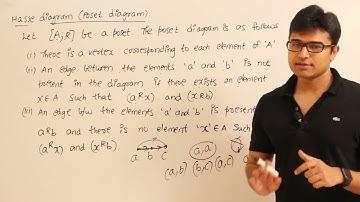 Hasse diagram (Poset diagram)
Let [A;R] be a poset. The poset diagram is as follows
(i) There is a vertex corresponding to each element of 'A'.
(ii) An edge between the elements 'a' and 'b' is not
present in the diagram, if there exists an element
x∈A such that (aRx) and (xRb)
(iii) An edge b/w the elements 'a' and 'b' is present
aRb and there is no element 'x'∈A Such
(aRx) and (xRb).
a b c
(a,a)
(a,b) (b,c) (a,c)